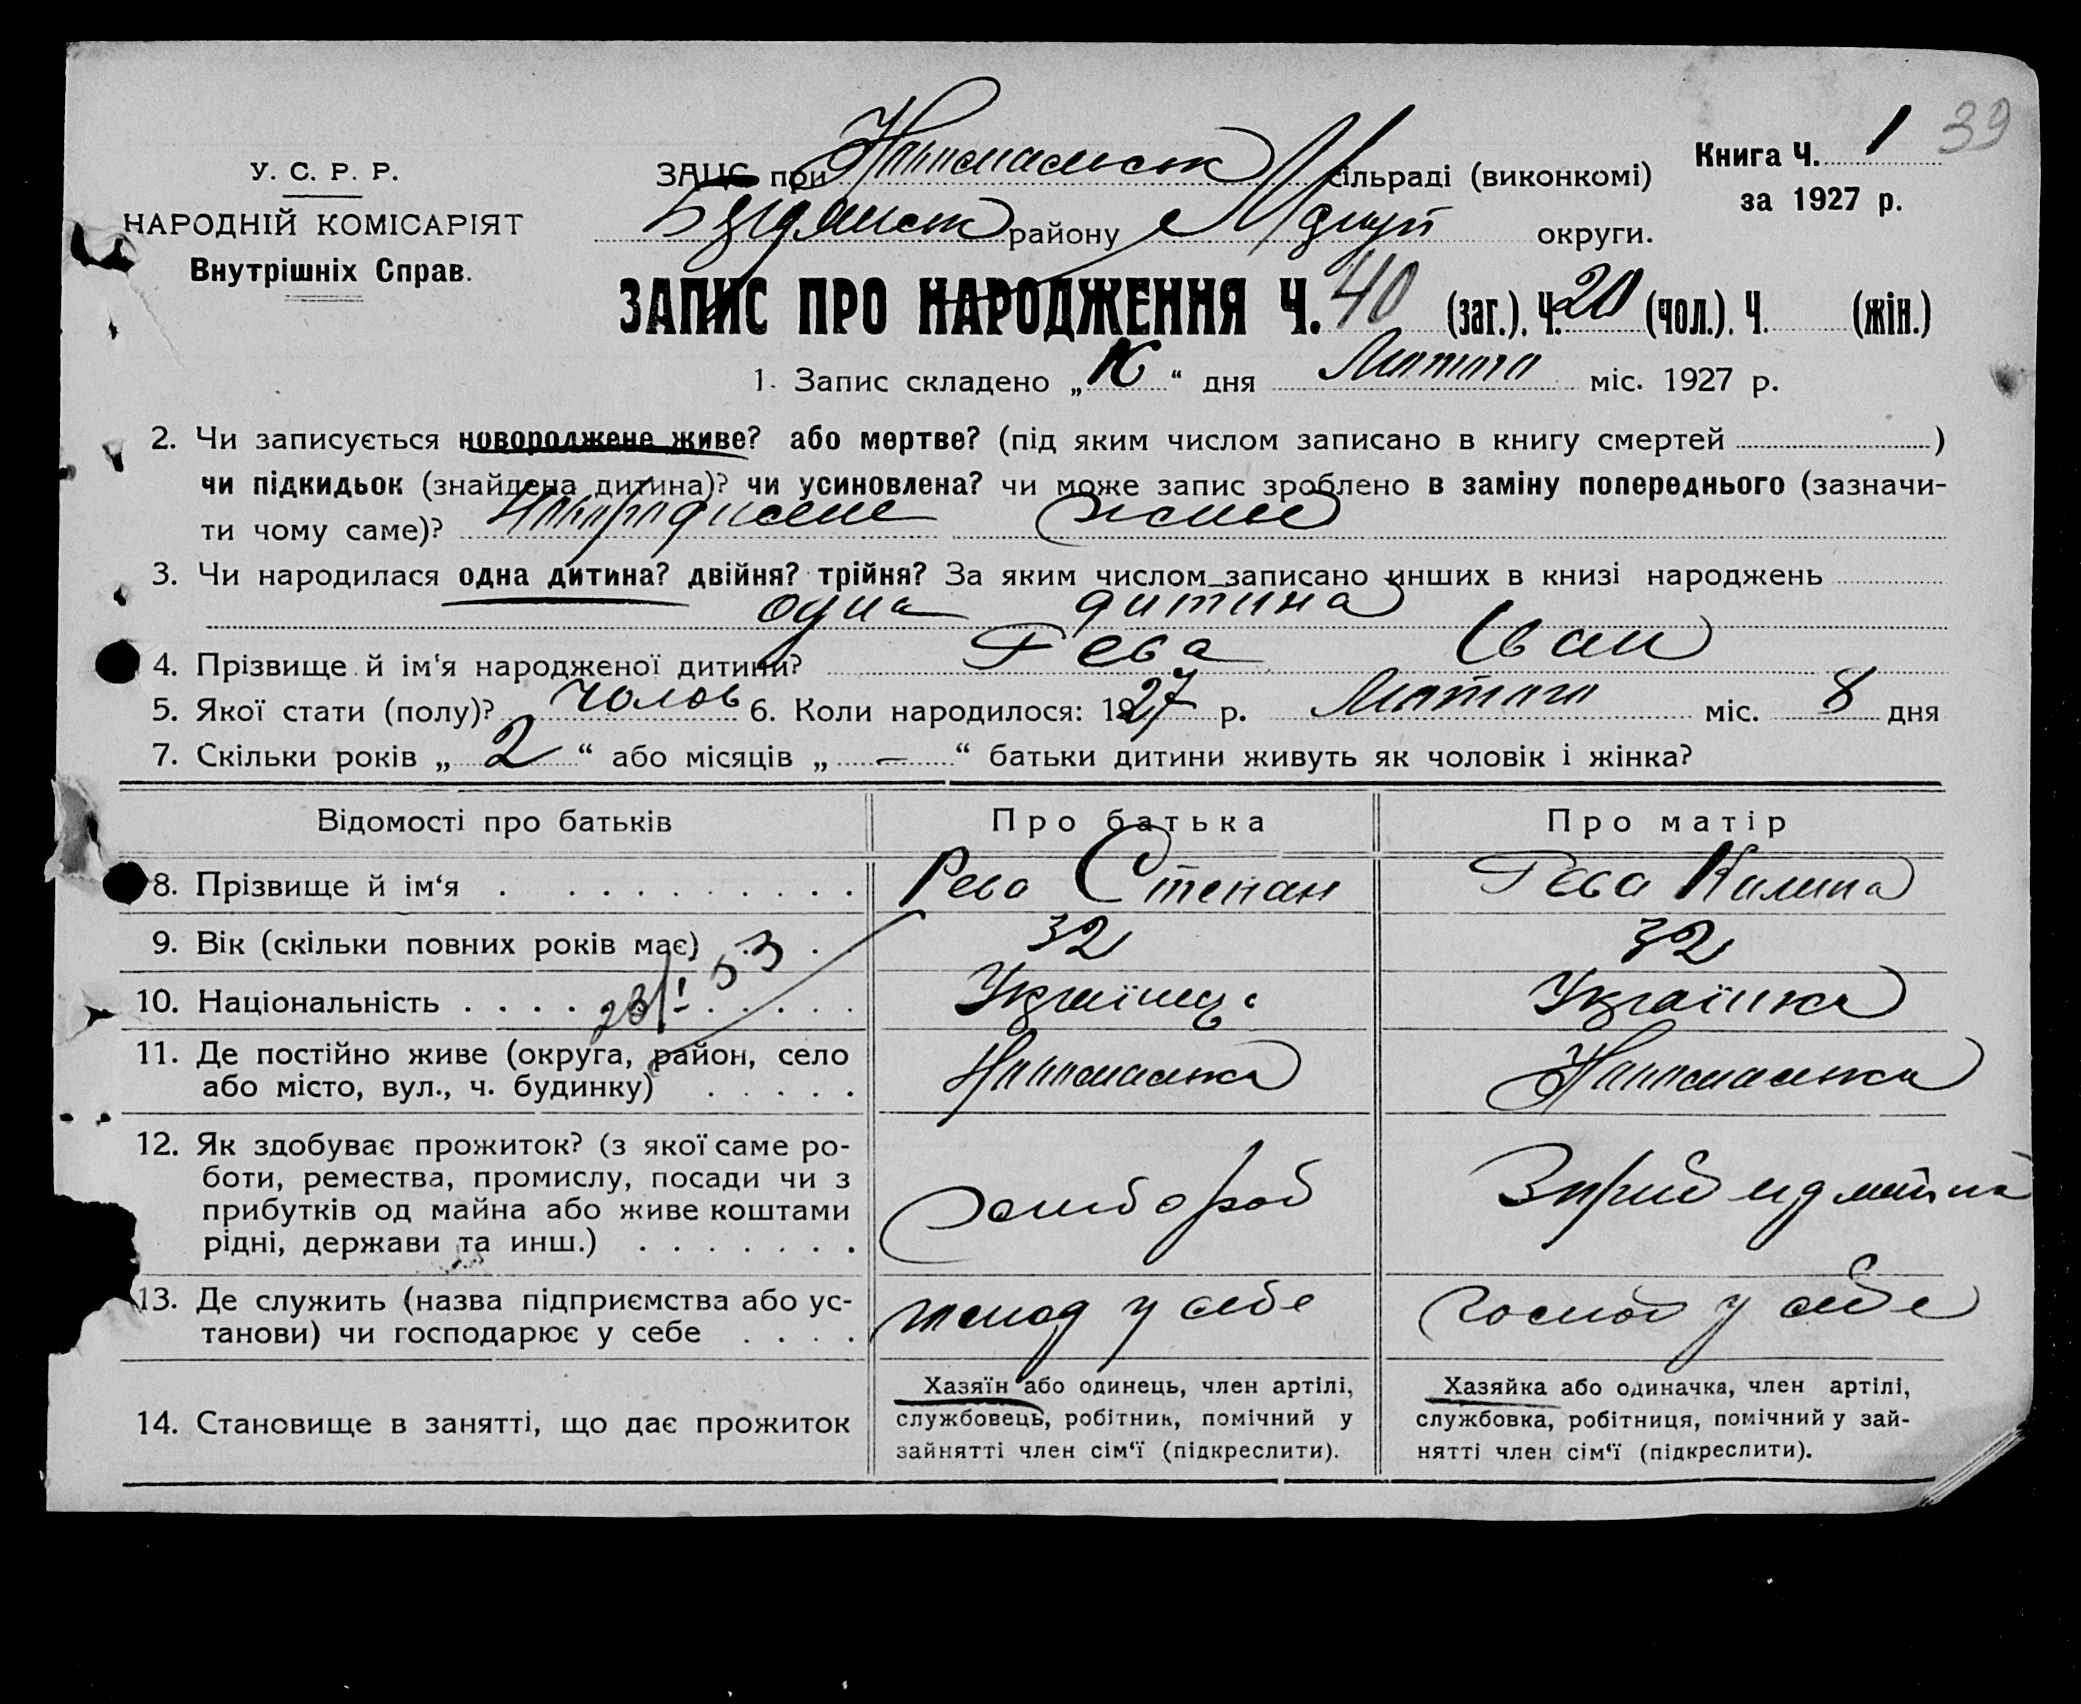 Книга Ч. 1 39
за 1927 р.
У. С. Р. Р.
НАРОДНІЙ КОМІСАРІЯТ
Внутрішніх Справ.
ЗАЦС при сільраді (виконкомі)
району округи.
ЗАПИС ПРО НАРОДЖЕННЯ Ч. 40 (заг.). Ч. 20 (чол.). Ч. (жін.)
1. Запис складено „ “ дня Лютого міс. 1927 р.
2. Чи записується новороджене живе? або мертве? (під яким числом записано в книгу смертей )
чи підкидьок (знайдена дитина)? чи усиновлена? чи може запис зроблено в заміну попереднього (зазначи-
ти чому саме)? Новороджене живе
3. Чи народилася одна дитина? двійня? трійня? За яким числом записано инших в книзі народжень
одна дитина
4. Прізвище й ім‘я народженої дитини? Рева Іван
5. Якої стати (полу)? чолов 6. Коли народилося: 1927 р. Лютого міс. 8 дня
7. Скільки років „ 2 “ або місяців „ — “ батьки дитини живуть як чоловік і жінка?
Відомості про батьків Про батька Про матір
8. Прізвище й ім‘я Рева Степан Рева Килина
9. Вік (скільки повних років має) 32 32
10. Національність Українець Українка
11. Де постійно живе (округа, район, село
або місто, вул., ч. будинку)
12. Як здобуває прожиток? (з якої саме ро-
боти, ремества, промислу, посади чи з
прибутків од майна або живе коштами
рідні, держави та инш.) хлібороб
13. Де служить (назва підприємства або ус-
танови) чи господарює у себе господ у себе господ у себе
14. Становище в занятті, що дає прожиток
Хазяїн або одинець, член артілі,
службовець, робітник, помічний у
зайнятті член сім‘ї (підкреслити).
Хазяйка або одиначка, член артілі,
службовка, робітниця, помічний у зай-
нятті член сім‘ї (підкреслити).